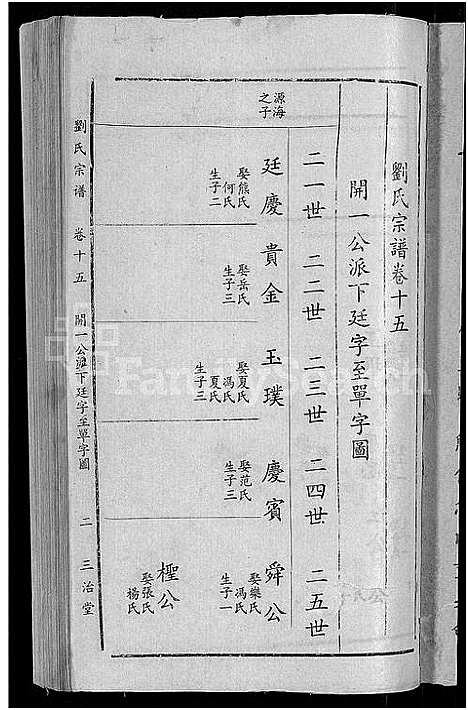 劉氏宗譜卷十五
開一公派下廷字至單字圖
二一世 二二世 二三世 二四世 二五世
源海之子
廷慶 貴金 玉璞 慶賓 舜公
娶熊氏
何氏
生子二
娶岳氏
生子三
娶夏氏
馮氏
夏氏
生子三
娶范氏
生子三
娶欒氏
馮氏
生子一
樫公
娶張氏
楊氏
劉氏宗谱 卷十五 開一公派下廷字至單字圖 二 三治堂